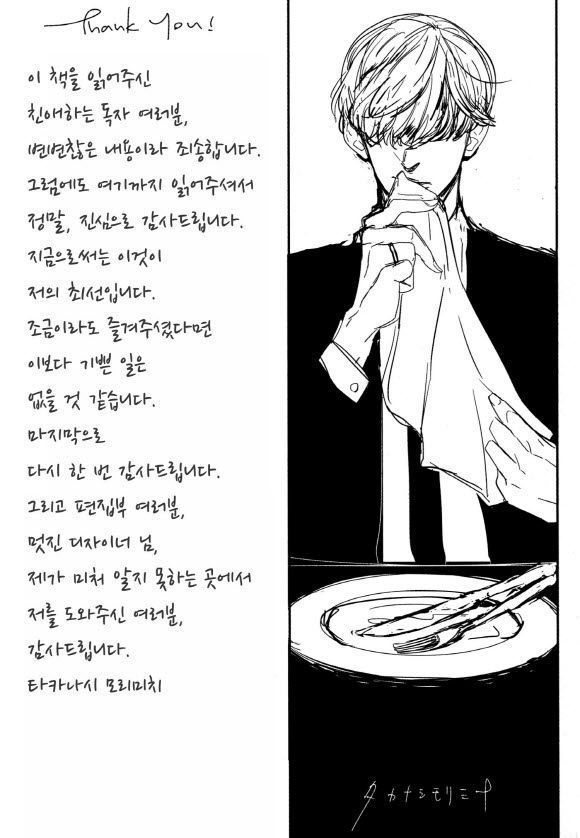 Thank You!
이 책을 읽어주신
친애하는 독자 여러분,
변변찮은 내용이라 죄송합니다.
그럼에도 여기까지 읽어주셔서
정말, 진심으로 감사드립니다.
지금으로써는 이것이
저의 최선입니다.
조금이라도 즐겨주셨다면
이보다 기쁜 일은
없을 것 같습니다.
마지막으로
다시 한 번 감사드립니다.
그리고 편집부 여러분,
멋진 디자이너 님,
제가 미처 알지 못하는 곳에서
저를 도와주신 여러분,
감사드립니다.
타카나시 모리미치
タカナシモリミチ